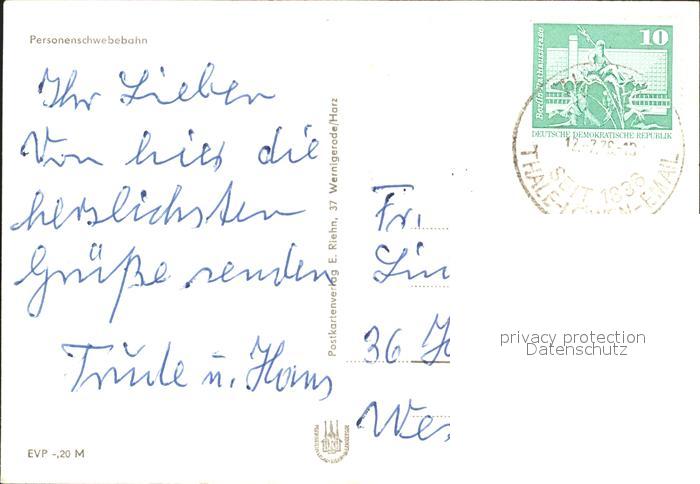 Personenschwebebahn
Ihr Lieben
Von hier die
herzlichsten
Grüße senden
Trude u. Hans
EVP -,20 M
Postkartenverlag E. Riehn, 37 Wernigerode/Harz
10
Berlin, Rathausstraße
DEUTSCHE DEMOKRATISCHE REPUBLIK
SEIT 1836
Fr.
36
privacy protection
Datenschutz